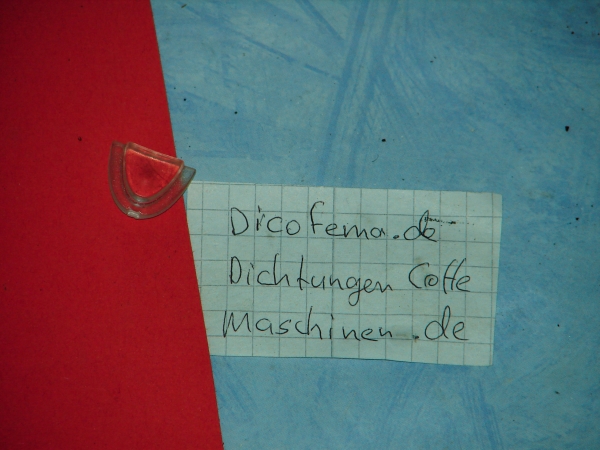 Dicofema.de
Dichtungen Coffe
Maschinen.de